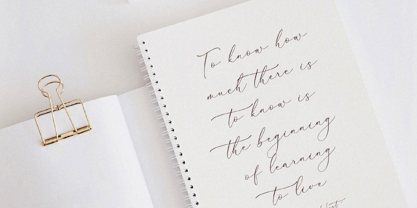 To know how
much there is
to know is
the beginning
of learning
to live